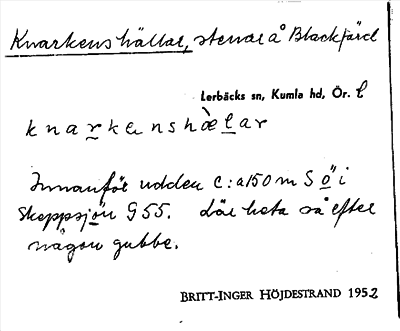 Knarkenshällar, stenar å Blackfjärd
Lerbäcks sn, Kumla hd, Ör. l
k n a r k e n s h æ l a r
Innanför udden c:a 150 m S ö i
Skeppsjön G 55. Lär heta så efter
någon gubbe.
BRITT-INGER HÖJDESTRAND 1952